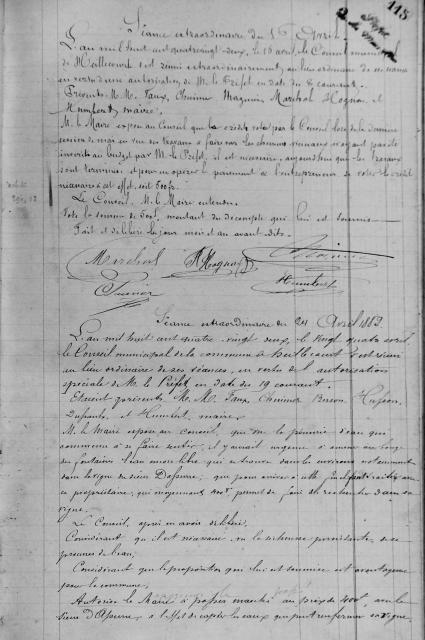 115
Séance extraordinaire du 16 Avril.
L'an mil huit cent quatre vingt deux, le 16 avril, le Conseil municipal
de Heillecourt s'est réuni extraordinairement, au lieu ordinaire de ses séances
en vertu d'une autorisation de M. le Préfet en date du 8 courant.
Présents M.M. Faux, Marchal, Hognon, et
Humbert, maire.
M. le Maire expose au Conseil que le crédit voté par le Conseil lors de la dernière
session de mai en vue des travaux à faire sur les chemins ruraux n'ayant pas été
inscrits au budget par M. le Préfet, il est nécessaire, aujourd'hui que les travaux
sont terminés et pour en opérer le paiement à l'entrepreneur, de voter le crédit
nécessaire à cet effet, soit 500f.
Le Conseil, M. le Maire entendu,
Vote la somme de 500f, montant du décompte qui lui est soumis.
Fait et délibéré les jour, mois et an avant dits.
Marchal Hognon
Humbert
Séance extraordinaire du 24 Avril 1882.
L'an mil huit cent quatre vingt deux, le vingt quatre avril,
le Conseil municipal de la commune d'Heillecourt s'est réuni
au lieu ordinaire de ses séances, en vertu de l'autorisation
spéciale de M. le Préfet en date du 19 courant.
Etaient présents M.M. Faux, Husson,
et Humbert, maire.
M. le Maire expose au Conseil, que vu la pénurie d'eau qui
commence à se faire sentir, il y aurait urgence à amener au
fontaines l'eau encore libre qui se trouve dans les environs notamment
dans la vigne du sieur; que pour arriver à cette fin il faut traiter avec
ce propriétaire, qui moyennant 400f permet de faire des recherches dans sa
vigne.
Le Conseil, après en avoir délibéré,
Considérant qu'il est nécessaire, vu la sécheresse persistante, de se
pourvoir de l'eau;
Considérant que la proposition qui lui est soumise est avantageuse
pour la commune,
Autorise le Maire à passer marché au prix de 400f, avec le
sieur à l'effet de capter les eaux que peut renfermer sa vigne,